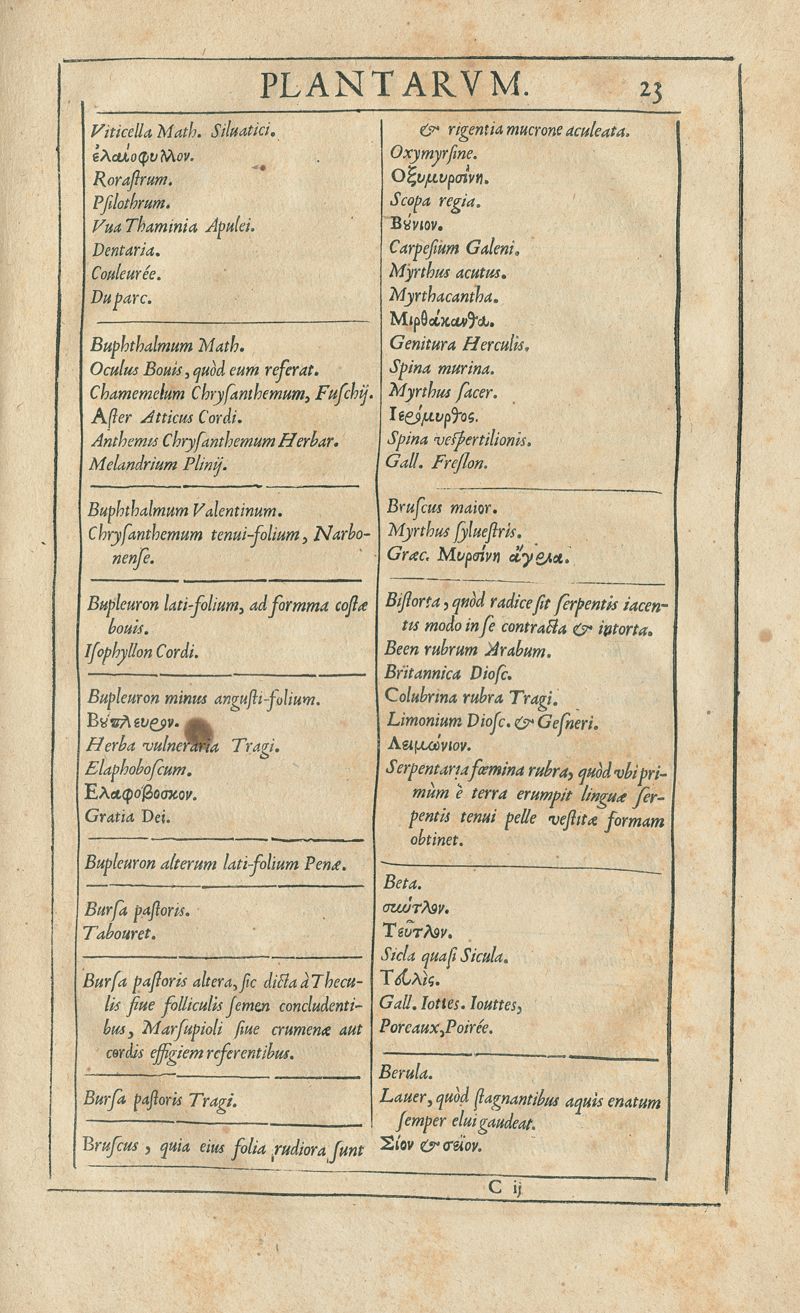 PLANTARVM.
23
Viticella Math. Siluatici.
ἐλαιόφυλλον.
Roraſtrum.
Pſilothrum.
Vua Thaminia Apulei.
Dentaria.
Couleurée.
Du parc.
Buphthalmum Math.
Oculus Bouis, quòd eum referat.
Chamemelum Chryſanthemum, Fuſchij.
Aſter Atticus Cordi.
Anthemis Chryſanthemum Herbar.
Melandrium Plinij.
Buphthalmum Valentinum.
Chryſanthemum tenui-folium, Narbo-
nenſe.
Bupleuron lati-folium, ad formma coſtæ
bouis.
Iſophyllon Cordi.
Bupleuron minus anguſti-folium.
Βȣ́πλευρον.
Herba vulneraria Tragi.
Elaphoboſcum.
Ελαφοβοσκον.
Gratia Dei.
Bupleuron alterum lati-folium Penæ.
Burſa paſtoris.
Tabouret.
Burſa paſtoris altera, ſic dicta à Thecu-
lis ſiue folliculis ſemen concludenti-
bus, Marſupioli ſiue crumenæ aut
cordis effigiem referentibus.
Burſa paſtoris Tragi.
Bruſcus, quia eius folia rudiora ſunt
& rigentia mucrone aculeata.
Oxymyrſine.
Οξυμυρσίνη.
Scopa regia.
Βȣ́νιον.
Carpeſium Galeni.
Myrthus acutus.
Myrthacantha.
Μιρθάκανθα.
Genitura Herculis.
Spina murina.
Myrthus ſacer.
Ιερόμυρθος.
Spina veſpertilionis.
Gall. Freſlon.
Bruſcus maior.
Myrthus ſylueſtris.
Græc. Μυρσίνη ἄγρια.
Biſtorta, quòd radice ſit ſerpentis iacen-
tis modo in ſe contracta & intorta.
Been rubrum Arabum.
Britannica Dioſc.
Colubrina rubra Tragi.
Limonium Dioſc. & Geſneri.
Λειμώνιον.
Serpentaria fœmina rubra, quòd vbi pri-
mùm è terra erumpit linguæ ſer-
pentis tenui pelle veſtitæ formam
obtinet.
Beta.
Τεῦτλον.
Sicla quaſi Sicula.
Gall. Iottes. Iouttes,
Poreaux, Poirée.
Berula.
Lauer, quòd ſtagnantibus aquis enatum
ſemper elui gaudeat.
Σίον & σεῖον.
C ij